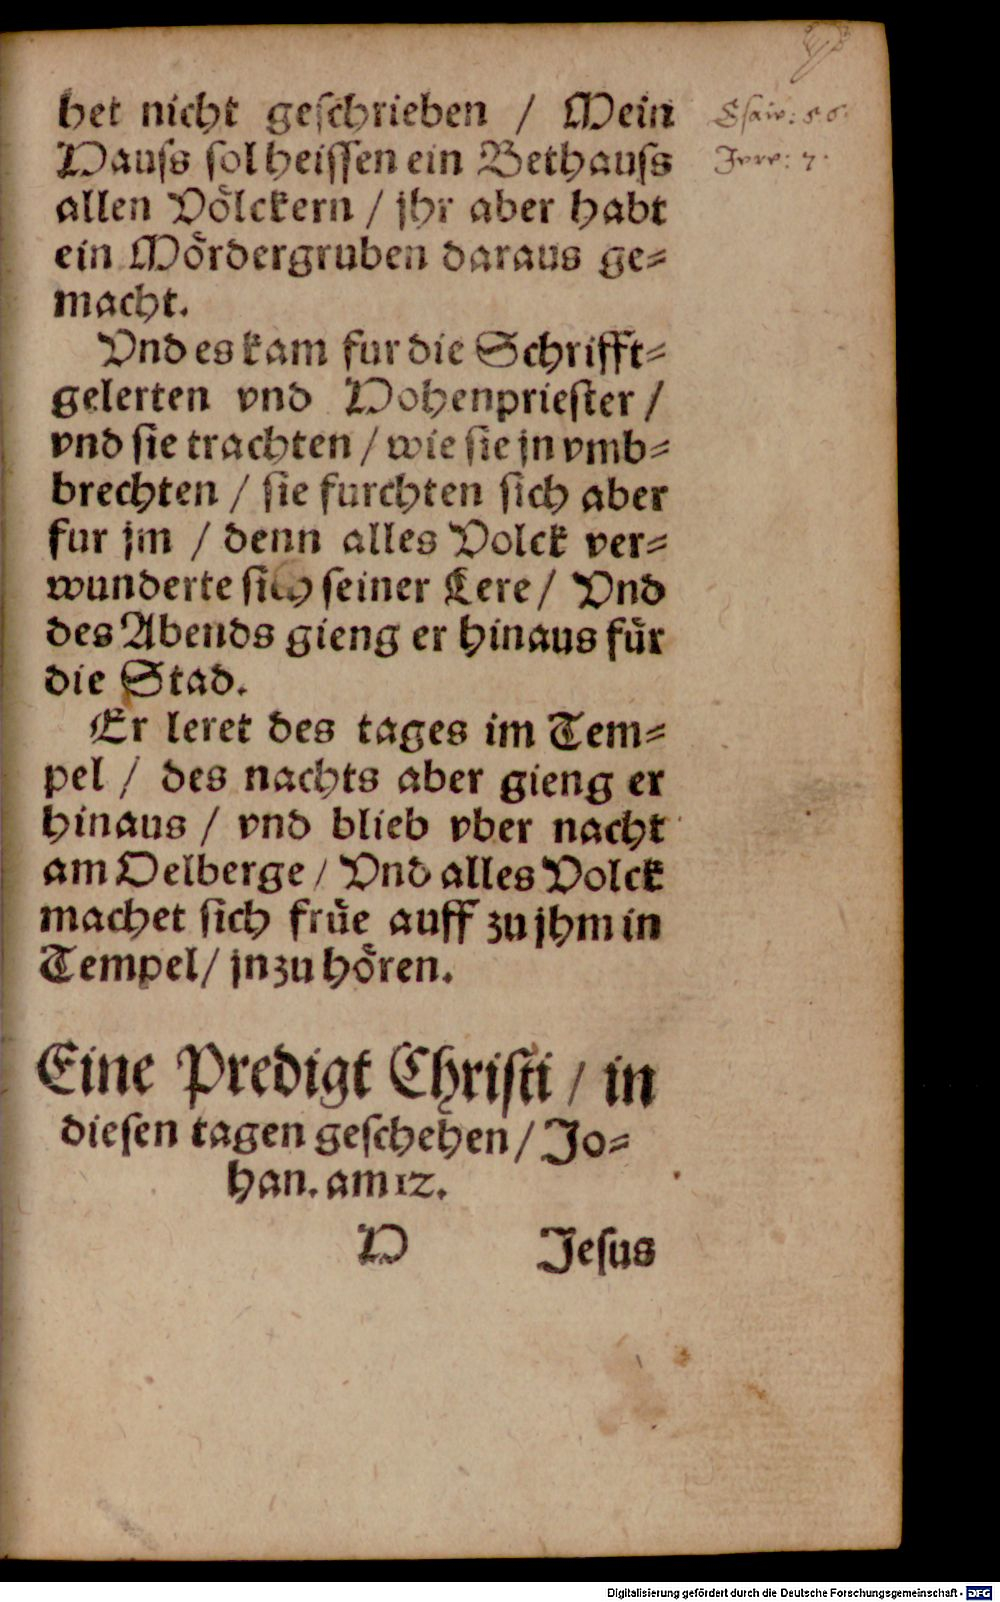 het nicht geschrieben / Mein
Hauss sol heissen ein Bethauss
allen Völckern / jhr aber habt
ein Mördergruben daraus ge=
macht.
Vnd es kam fur die Schrifft=
gelerten vnd Hohenpriester /
vnd sie trachten / wie sie jn vmb=
brechten / sie furchten sich aber
fur jm / denn alles Volck ver=
wunderte sich seiner Lere / Vnd
des Abends gieng er hinaus für
die Stad.
Er leret des tages im Tem=
pel / des nachts aber gieng er
hinaus / vnd blieb vber nacht
am Oelberge / Vnd alles Volck
machet sich früe auff zu jhm in
Tempel / jn zu hören.
Eine Predigt Christi / in
diesen tagen geschehen / Jo=
han. am 12.
H Jesus
Esaiæ: 56.
Jere: 7.
Digitalisierung gefördert durch die Deutsche Forschungsgemeinschaft - DFG